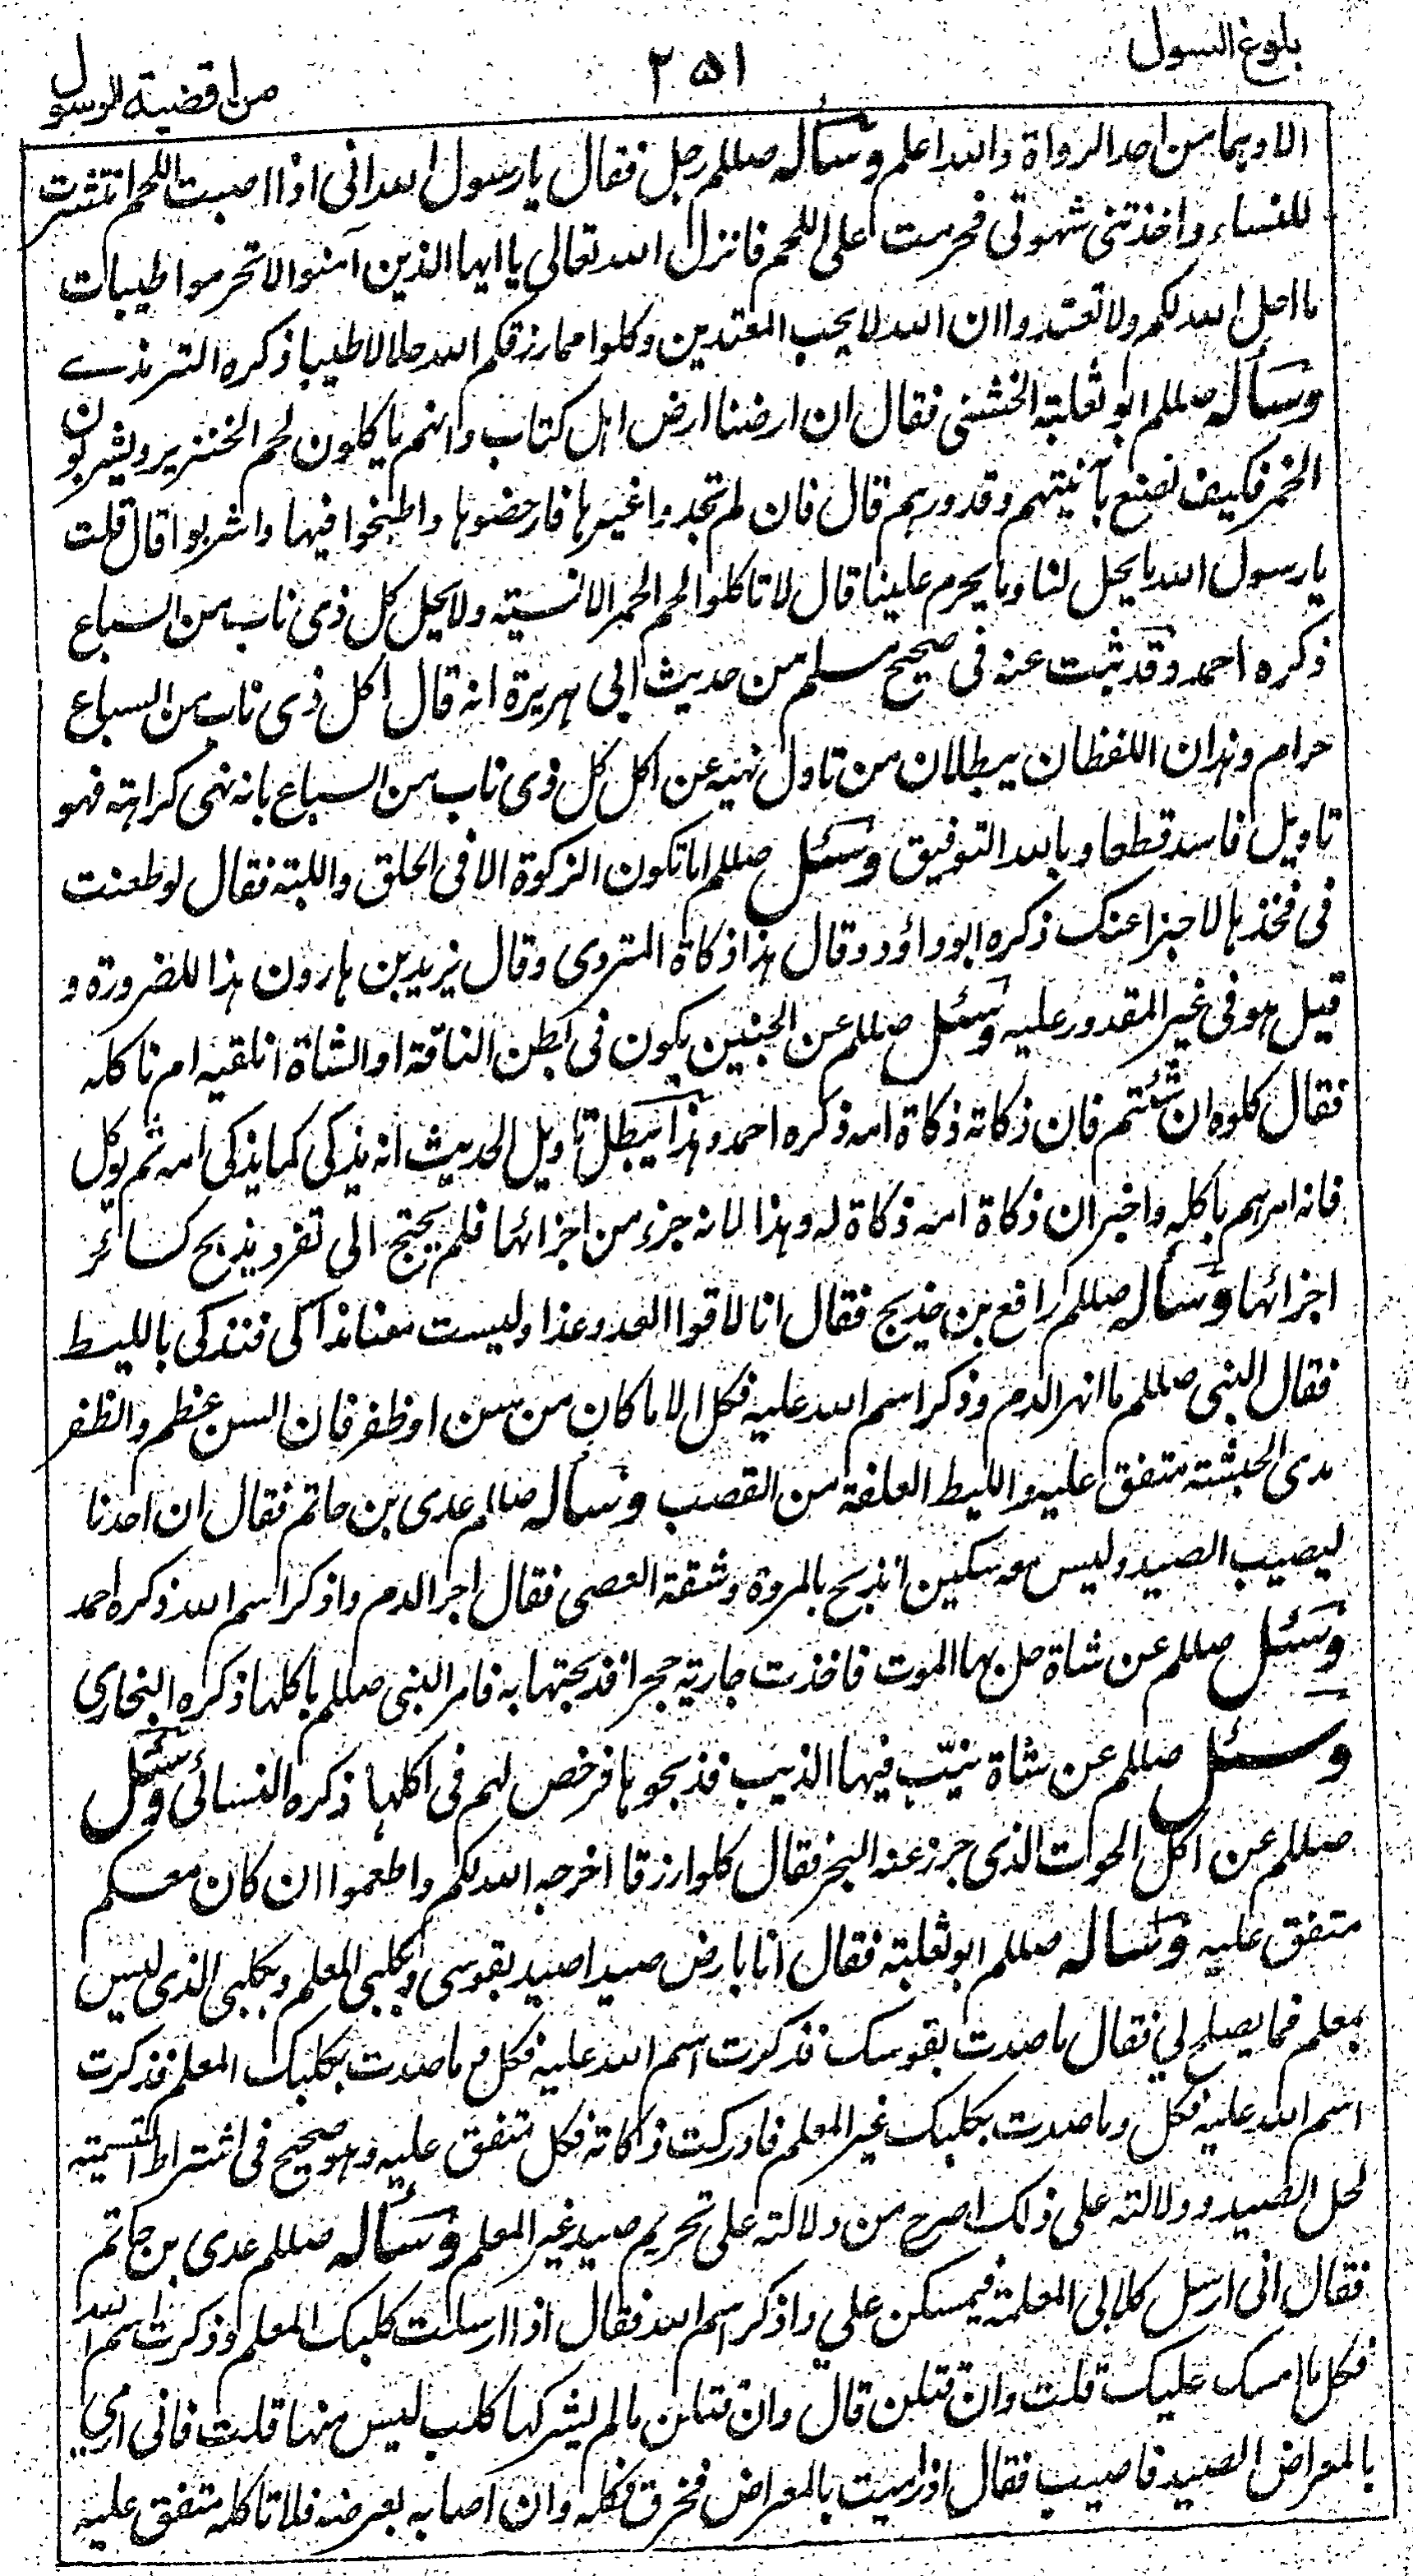 بلوغ السول
۲۵۱
من اقضية الرسول
الا وہما من احد الرواة واللہ اعلم وسألہ صللم رجل فقال یا رسول اللہ انی اذا اصبت اللحم انتشرت
للنساء واخذتنی شہوتی فحرمت علی اللحم فانزل اللہ تعالی یا ایہا الذین آمنوا لا تحرموا طیبات
ما احل اللہ لکم ولا تعتدوا ان اللہ لا یحب المعتدین وکلوا مما رزقکم اللہ حلالا طیبا ذکرہ الترمذے
وسألہ صللم ابو ثعلبتہ الخشنی فقال ان ارضنا ارض اہل کتاب وانہم یاکلون لحم الخنزیر ویشربون
الخمر فکیف نصنع بآنیتہم وقدورہم قال فان لم تجدوا غیرہا فارحضوہا واطبخوا فیہا واشربوا قال قلت
یا رسول اللہ ما یحل لنا وما یحرم علینا قال لا تاکلوا لحم الحمر الانسیتہ ولا یحل کل ذی ناب من السباع
ذکرہ احمد وقد ثبت عنہ فی صحیح مسلم من حدیث ابی ہریرة انہ قال اکل ذی ناب من السباع
حرام وہذان اللفظان یبطلان من تاول نہیہ عن اکل کل ذی ناب من السباع بانہ نہی کراہتہ فہو
تاویل فاسد قطعا وباللہ التوفیق وسئل صللم اما تکون الزکوة الا فی الحلق واللبتہ فقال لو طعنت
فی فخذہا لاجزا عنک ذکرہ ابو داؤد وقال ہذا ذکاة المتردی وقال یزید بن ہارون ہذا للضرورة و
قیل ہو فی غیر المقدور علیہ وسئل صللم عن الجنین یکون فی بطن الناقة او الشاة انلقیہ ام ناکلہ
فقال کلوہ ان شئتم فان ذکاتہ ذکاة امہ ذکرہ احمد وہذا یبطل تاویل الحدیث انہ یذکی کما یذکی امہ ثم یوکل
فانہ امرہم باکلہ واخبر ان ذکاة امہ ذکاة لہ وہذا لانہ جزء من اجزائہا فلم یحتج الی تفرد بذبح کسائر
اجزائہا وسألہ صللم رافع بن خدیج فقال انا لاقوا العدو غدا ولیست معنا مذا کی فنذکی باللیط
فقال النبی صللم ما انہر الدم وذکر اسم اللہ علیہ فکل الا ما کان من سن او ظفر فان السن عظم والظفر
مدی الحبشتہ متفق علیہ واللیط الفلقة من القصب وسألہ صللم عدی بن حاتم فقال ان احدنا
لیصیب الصید ولیس معہ سکین ایذبح بالمروة وشقة العصی فقال اجر الدم واذکر اسم اللہ ذکرہ احمد
وسئل صللم عن شاة حل بہا الموت فاخذت جاریتہ حجرا فذبحتہا بہ فامر النبی صللم باکلہا ذکرہ البخاری
وسئل صللم عن شاة نیّب فیہا الذیب فذبحوہا فرخص لہم فی اکلہا ذکرہ النسائی وسئل
صللم عن اکل الحوت الذی جزر عنہ البحر فقال کلوا رزقا اخرجہ اللہ لکم واطعموا ان کان معکم
متفق علیہ وسالہ صللم ابو ثعلبتہ فقال انا بارض صید اصید بقوسی وبکلبی المعلم وبکلبی الذی لیس
بمعلم فما یصلح لی فقال ما صدت بقوسک فذکرت اسم اللہ علیہ فکل وما صدت بکلبک المعلم فذکرت
اسم اللہ علیہ فکل وما صدت بکلبک غیر المعلم فادرکت ذکاتہ فکل متفق علیہ وہو صحیح فی اشتراط التسمیتہ
لحل الصید ودلالتہ علی ذلک اصرح من دلالتہ علی تحریم صید غیر المعلم وسألہ صللم عدی بن حاتم
فقال انی ارسل کلابی المعلمتہ فیمسکن علی واذکر اسم اللہ فقال اذا ارسلت کلبک المعلم وذکرت اسم اللہ
فکل ما امسک علیک قلت وان قتلن قال وان قتلن ما لم یشرکہا کلب لیس منہا قلت فانی ارمی
بالمعراض الصید فاصیب فقال اذا رمیت بالمعراض فخرق فکلہ وان اصابہ بعرضہ فلا تاکلہ متفق علیہ